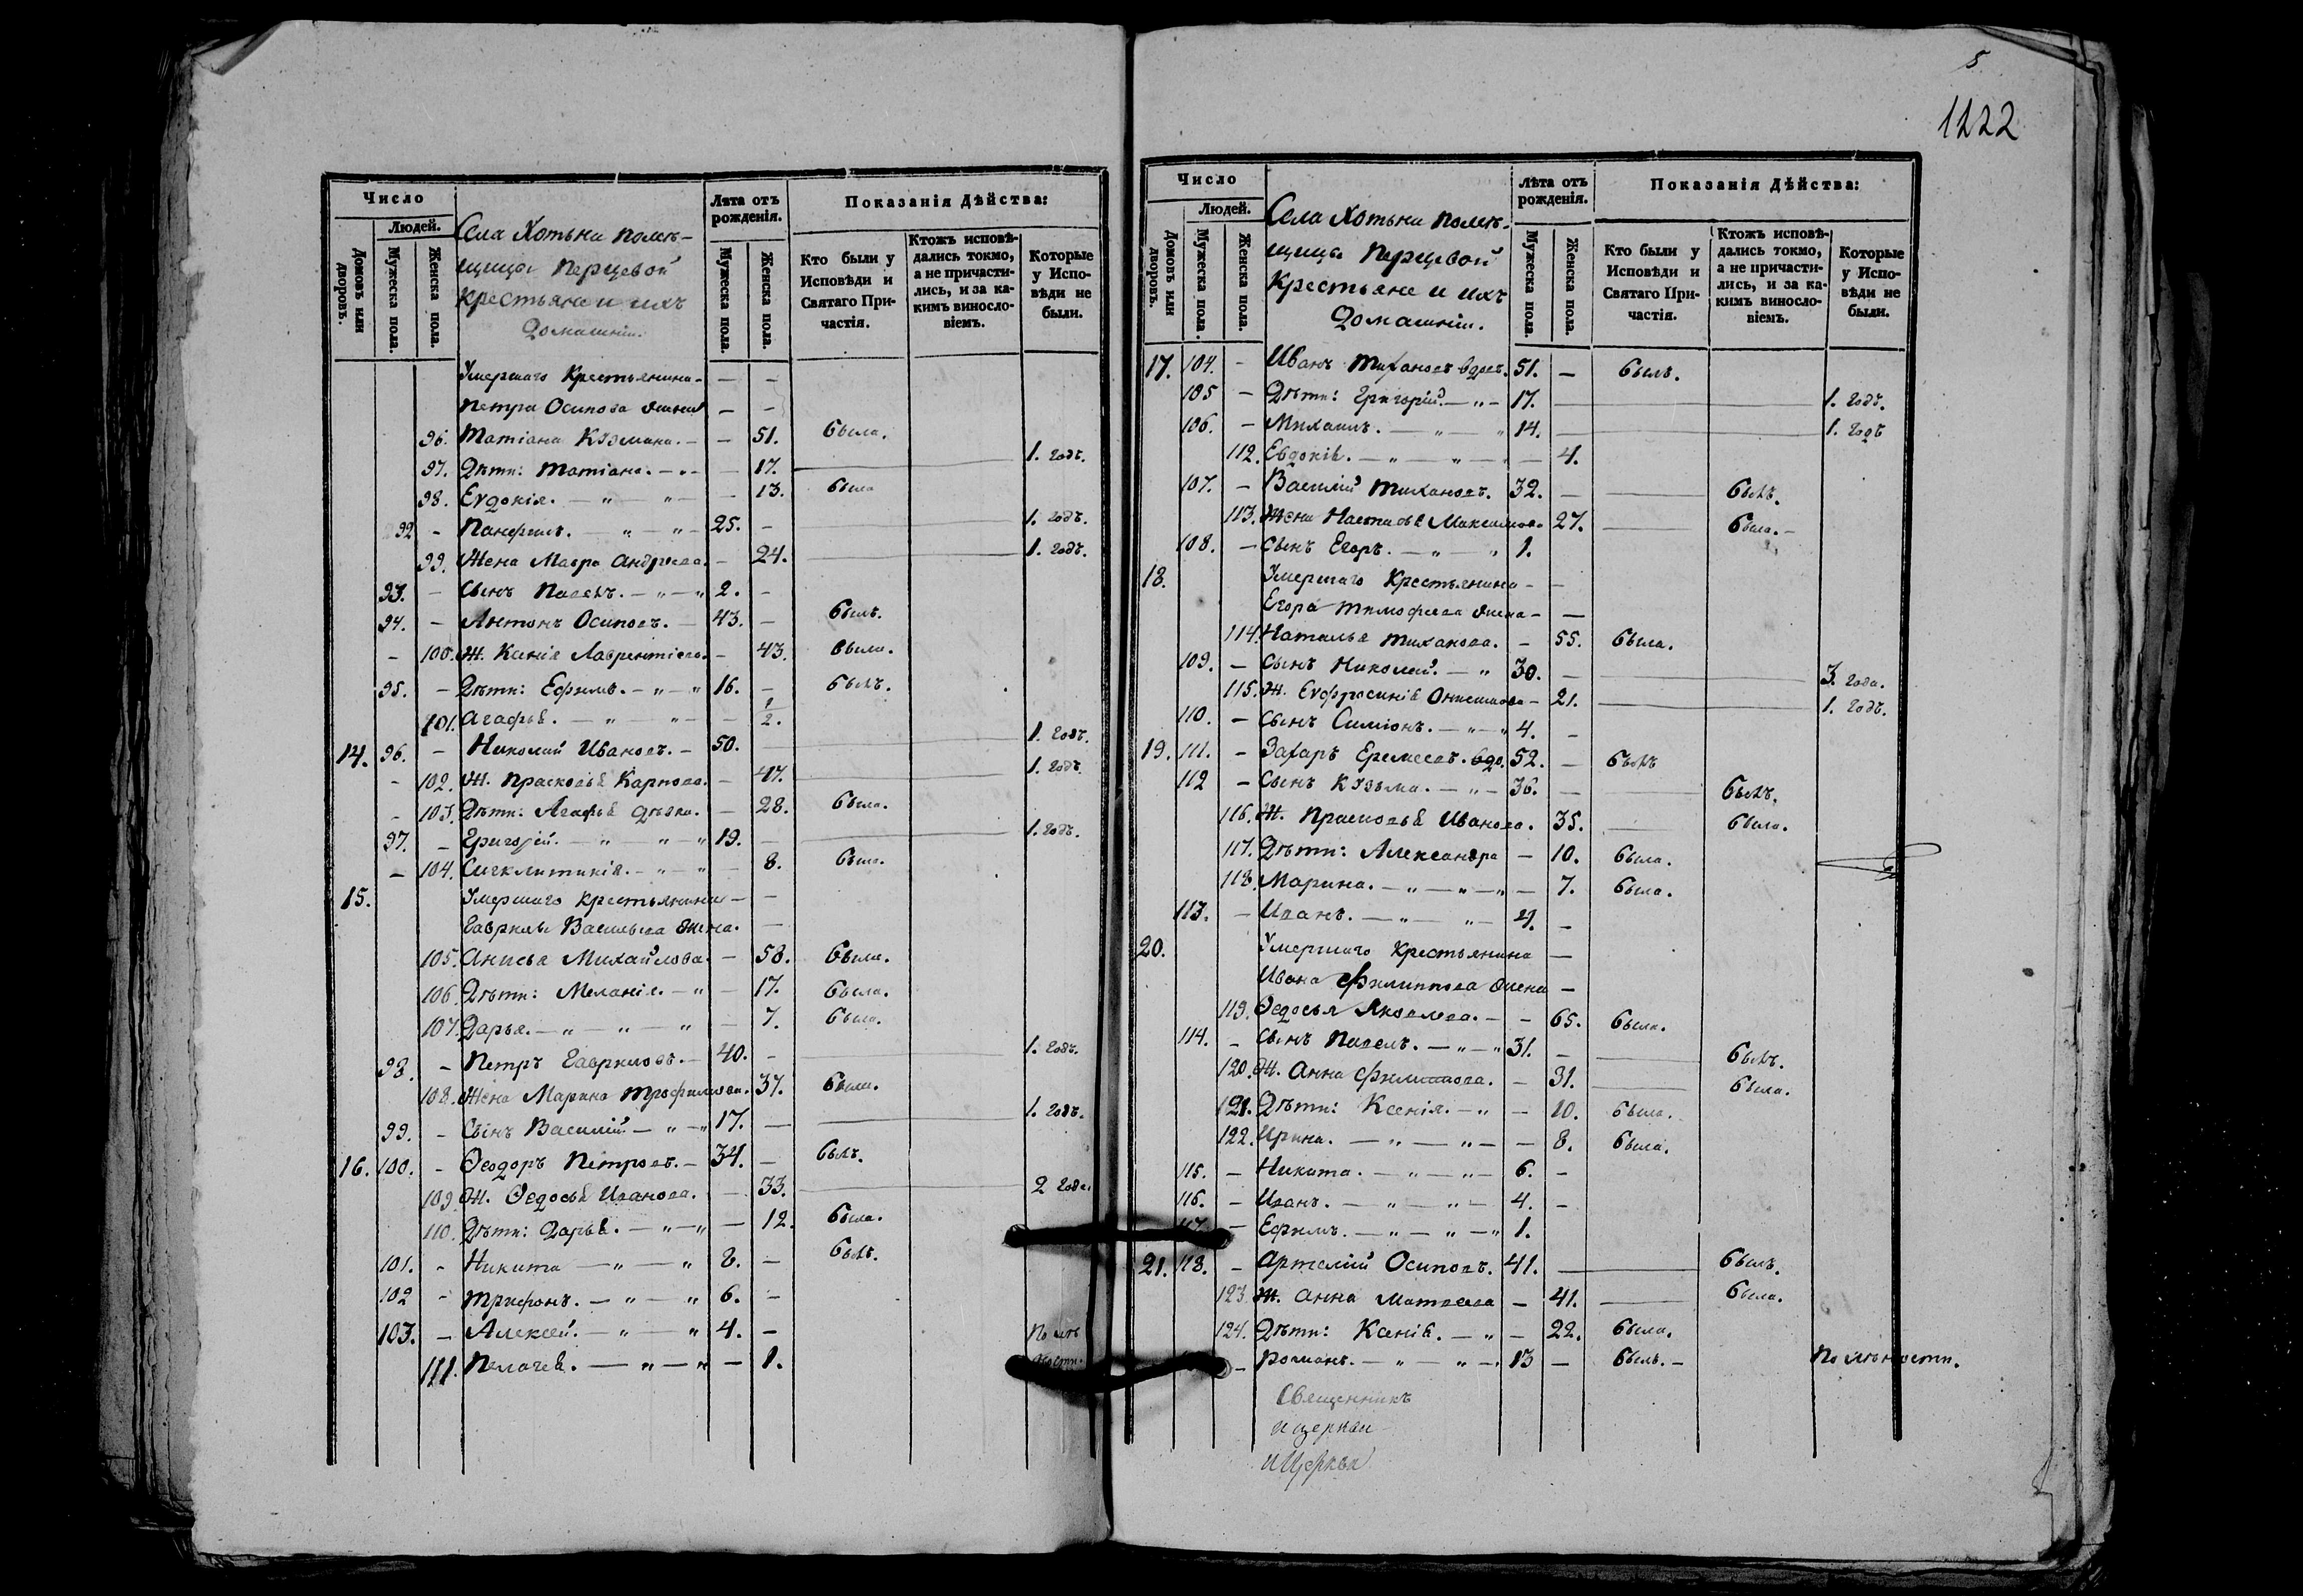 Число
Людей.
Домовъ или дворовъ.
Мужеска пола.
Женска пола.
Села Хотьни помѣ-
щицы Перцевой
Крестьяне и ихъ
домашніи.
Лѣта отъ рожденія.
Мужеска пола.
Женска пола.
Показанія Дѣйства:
Кто были у Исповѣди и Святаго При-частія.
Ктожъ исповѣ-дались токмо, а не причасти-лись, и за ка-кимъ винословіемъ.
Которые у Испо-вѣди не были.
Умершаго Крестьянина - — —
Петра Осипова жена — —
96. Татіана Козмина. — — 51. была.
97. Дѣти: Татіана. — „ — — 17. 1. годъ.
98. Евдокія. — „ — „ — — 13. была
92 - Панфилъ. — „ — „ — 25. - 1. годъ.
99. Жена Мавра Андреева. — 24. 1. годъ.
93. — Сынъ Павелъ. — „ — „ 2. -
94. — Антонъ Осиповъ. — 43. — былъ.
— 100. Ж. Ксенія Лаврентіева. — 43. была.
95. — Дѣти: Ефимъ. — „ — „ 16. — былъ.
101. Агафья. — „ — „ — — 2.
14. 96. — Николай Ивановъ. — 50. 1. годъ.
- 102. Ж. Прасковья Карпова. — 47. 1. годъ.
- 103. Дѣти: Агафья дѣвка. — 28. была.
97. — Григорій. — „ — „ — „ 19. — 1. годъ.
— 104. Сигклитикія. — „ — „ — 8. была.
15. Умершаго крестьянина — —
Гаврилы Васильева жена. —
105. Анисья Михайлова. — 58. была.
106. Дѣти: Меланія. — „ — 17. была.
107. Дарья. — „ — „ — „ — 7. была.
98. — Петръ Гавриловъ. — 40. — 1. годъ.
108. Жена Марина Трофимова. 37. была.
99. — Сынъ Василій — „ — „ 17. — 1. годъ.
16. 100. — Ѳеодоръ Петровъ. — 34. — былъ.
109 Ж. Ѳедосья Иванова. — 33. 2 года.
110. Дѣти: Дарья. — „ — „ — 12. была.
101. - Никита — „ — „ 8. — былъ.
102 - Трифонъ. — „ — „ 6. —
103. — Алексей. — „ — „ 4. —
111. Пелагея. — „ — „ — 1.
5
1222
Число
Людей.
Домовъ или дворовъ.
Мужеска пола.
Женска пола.
Села Хотьни помѣ-
щицы Перцевой
Крестьяне и ихъ
домашніи.
Лѣта отъ рожденія.
Мужеска пола.
Женска пола.
Показанія Дѣйства:
Кто были у Исповѣди и Святаго При-частія.
Ктожъ исповѣ-дались токмо, а не причасти-лись, и за ка-кимъ винословіемъ.
Которые у Испо-вѣди не были.
17. 104. - Иванъ Тихановъ вдов. 51. — былъ.
105 — Дѣти: Григорій. — „ — 17. 1. годъ.
106. — Михаилъ. — „ — „ 14. 1. годъ
112. Евдокія. — „ — „ — 4.
107. — Василій Тихановъ. 32. — былъ.
113. Жена Настасья Максимова 27. была. —
108. — Сынъ Егоръ. — „ — „ 1.
18. Умершаго Крестьянина — —
Егора Тимофеева жена — —
114. Наталья Тиханова. — 55. была.
109. — Сынъ Николай. — „ 30. — 3. года.
115. Ж. Евфросинія Онисимова — 21. 1. годъ.
110. — Сынъ Симіонъ. — „ — „ 4. -
19. 111. - Захаръ Еремеевъ. вдо. 52. — былъ
112 — Сынъ Козьма. — „ — 36. — былъ.
116. Ж. Прасковья Иванова. 35. была.
117. Дѣти: Александра — 10. была.
118. Марина. — „ — „ — „ — 7. была.
113. — Иванъ. — „ — „ — 4. -
20. Умершаго крестьянина —
Ивана Филиппова жена —
119. Ѳедосья Яковлева. — — 65. была.
114. — Сынъ Павелъ. — „ — „ 31. — былъ.
120. Ж. Анна Филиппова. — 31. была.
121. Дѣти: Ксенія. — „ — 10. была.
122. Ирина. — „ — „ — — 8. была.
115. — Никита. — „ — „ — 6. -
116. — Иванъ. — „ — „ — 4. -
117. — Ефимъ. — „ — „ — „ 1.
21. 118. — Артемій Осиповъ. 41. — былъ.
123. Ж. Анна Матвеева — 41. была.
124. Дѣти: Ксенія. — „ — 22. была.
— Романъ. — „ — „ — 13 — былъ. — По лѣности.
Священникъ
и церкви
и Церкви